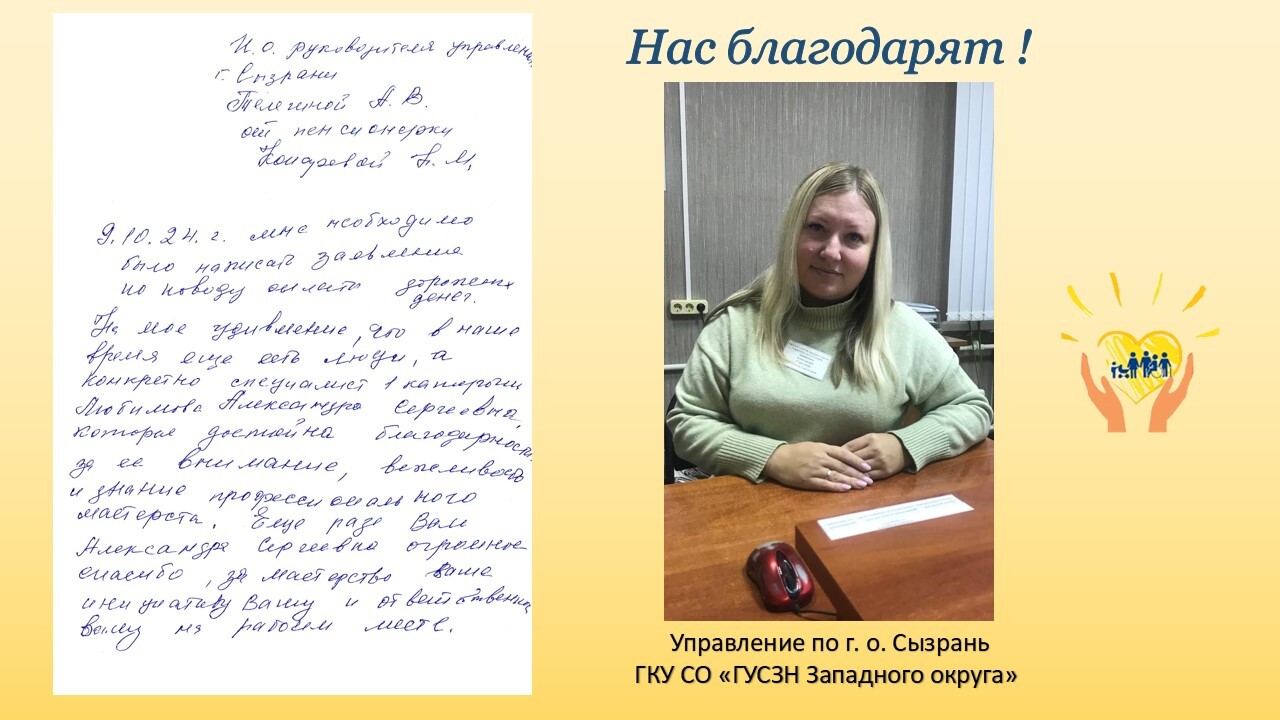 И.о. руководителя управлени
г. Сызрани
Телегиной А.В.
от пенсионерки
Н.М.
9.10.24.г. мне необходимо
было написат заявление
по поводу оплаты дорожных
денег.
На мое удивление, что в наше
время еще есть люди, а
конкретно специалист 1 категории
Любимова Александра Сергеевна,
которая достойна благодарност
за ее внимание, вежливость
и знание профессионального
мастерста. Еще разе Вам
Александра Сергеевна огромное
спасибо, за мастерство ваше
инициативу Вашу и ответственно
вашу на рабочем месте.
Нас благодарят !
Управление по г. о. Сызрань
ГКУ СО «ГУСЗН Западного округа»